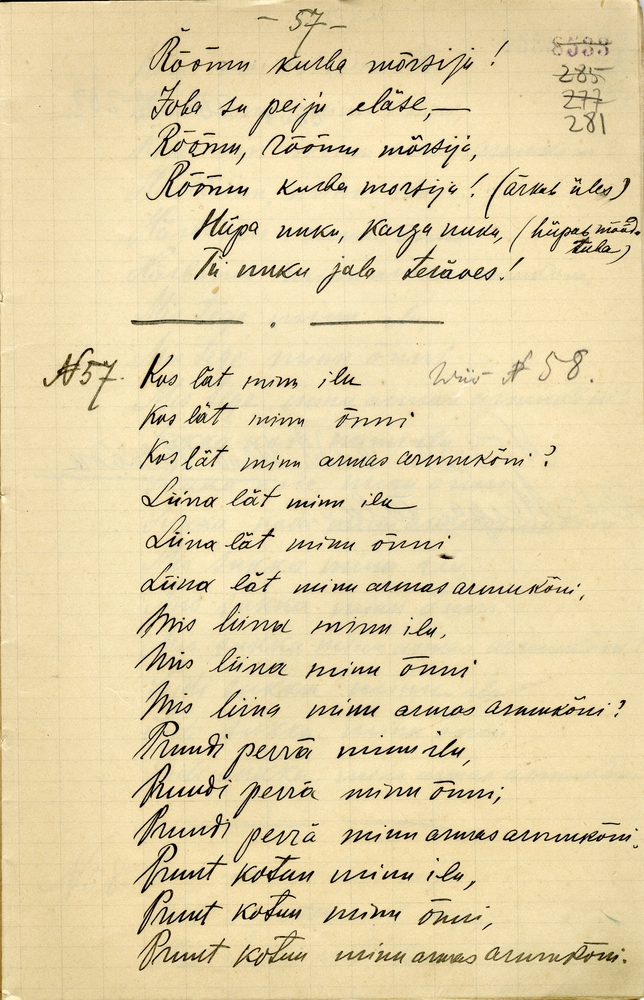 - 57 -
8533
285
277
281
Rõõmu kurba mõrsija!
Joba su peiju eläse, —
Rõõmu, rõõmu mõrsija,
Rõõmu kurba morsija! (ärkab üles)
Hüpa nuku, karga nuku, (hüpab mööda tuba)
Tii nuku jala teräves!
N 57. Kos lät minu ilu
Wiis N 58.
Kos lät minu õnni
Kos lät minu armas armukõni?
Liina lät minu ilu
Liina lät minu õnni
Liina lät minu armas armukõni,
Mis liina minu ilu,
Mis liina minu õnni
Mis liina minu armas armukõni?
Pruudi perrä minu ilu,
Pruudi perrä minu õnni,
Pruudi perrä minu armas armukõni.
Pruut kotun minu ilu,
Pruut kotun minu õnni,
Pruut kotun minu armas armukõni.